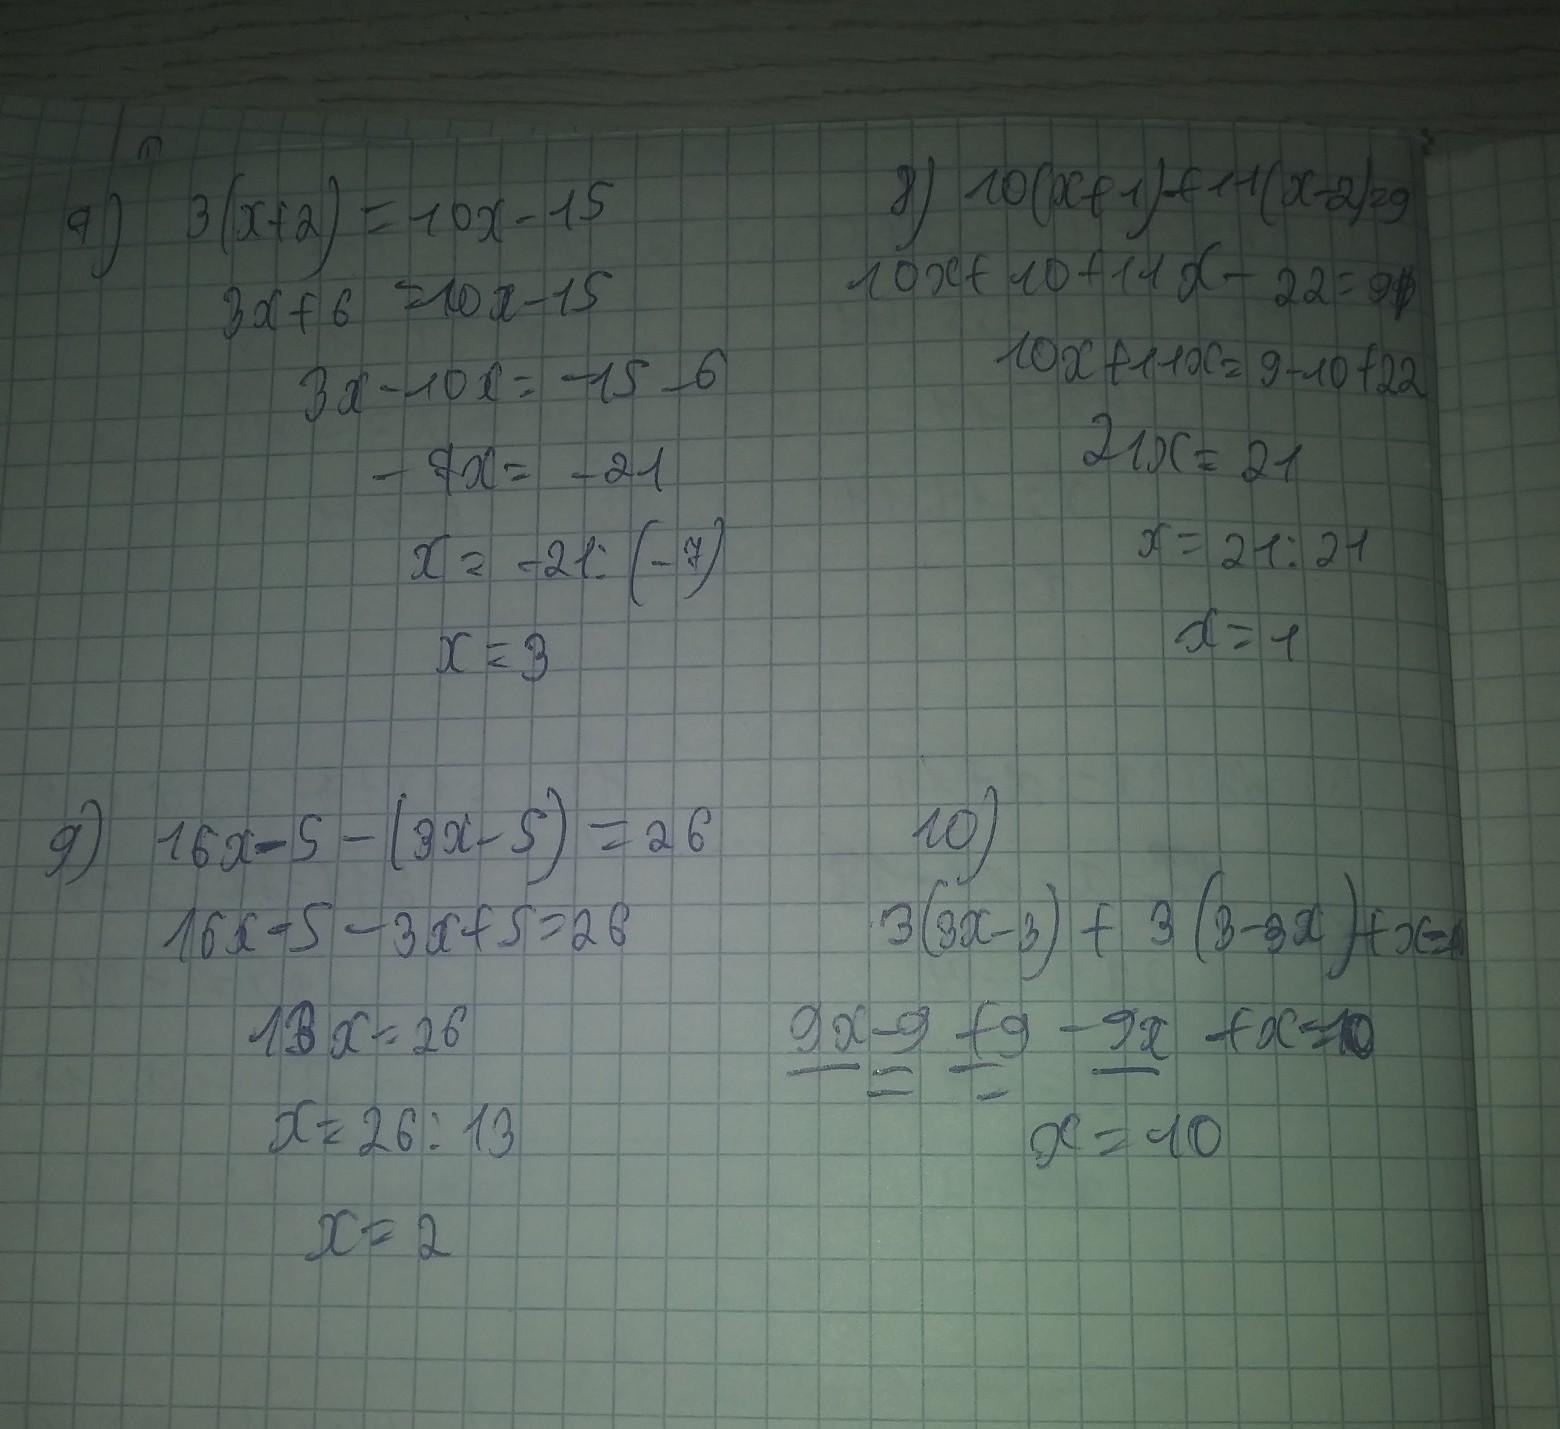 9) 3(x+2) = 10x - 15
3x+6 = 10x - 15
3x - 10x = -15 - 6
- 7x = - 21
x = - 21 : (-7)
x = 3
8) 10(x+1)+11(x-2)=9
10x+10+11x - 22 = 9
10x+11x = 9-10+22
21x = 21
x = 21 : 21
x = 1
9) 16x-5 - (3x-5) = 26
16x-5 - 3x+5 = 26
13x = 26
x = 26 : 13
x = 2
10)
3(3x-3) + 3(3-3x)+x=
9x-9 +9 - 9x +x=10
x = 10